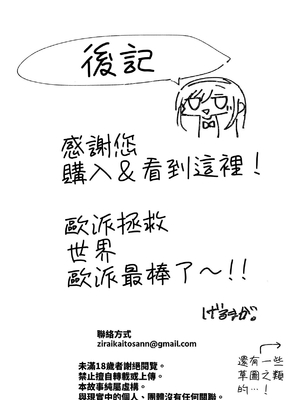 後記
感謝您
購入&看到這裡！
歐派拯救
世界
歐派最棒了～!!
聯絡方式
ziraikaitosann@gmail.com
未滿18歲者謝絕閱覽。
禁止擅自轉載或上傳。
本故事純屬虛構。
與現實中的個人、團體沒有任何關聯。
還有一些
草圖之類
的…！